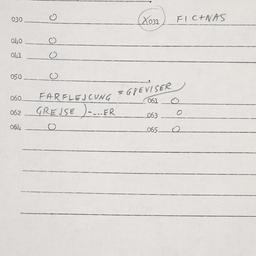 030 O X031 FICTNAS
040 O
041 O
050 O
060 FARFLEJCUNG = GREVISER
061 O
062 GREJSE )-...ER 063 O
064 O 065 O